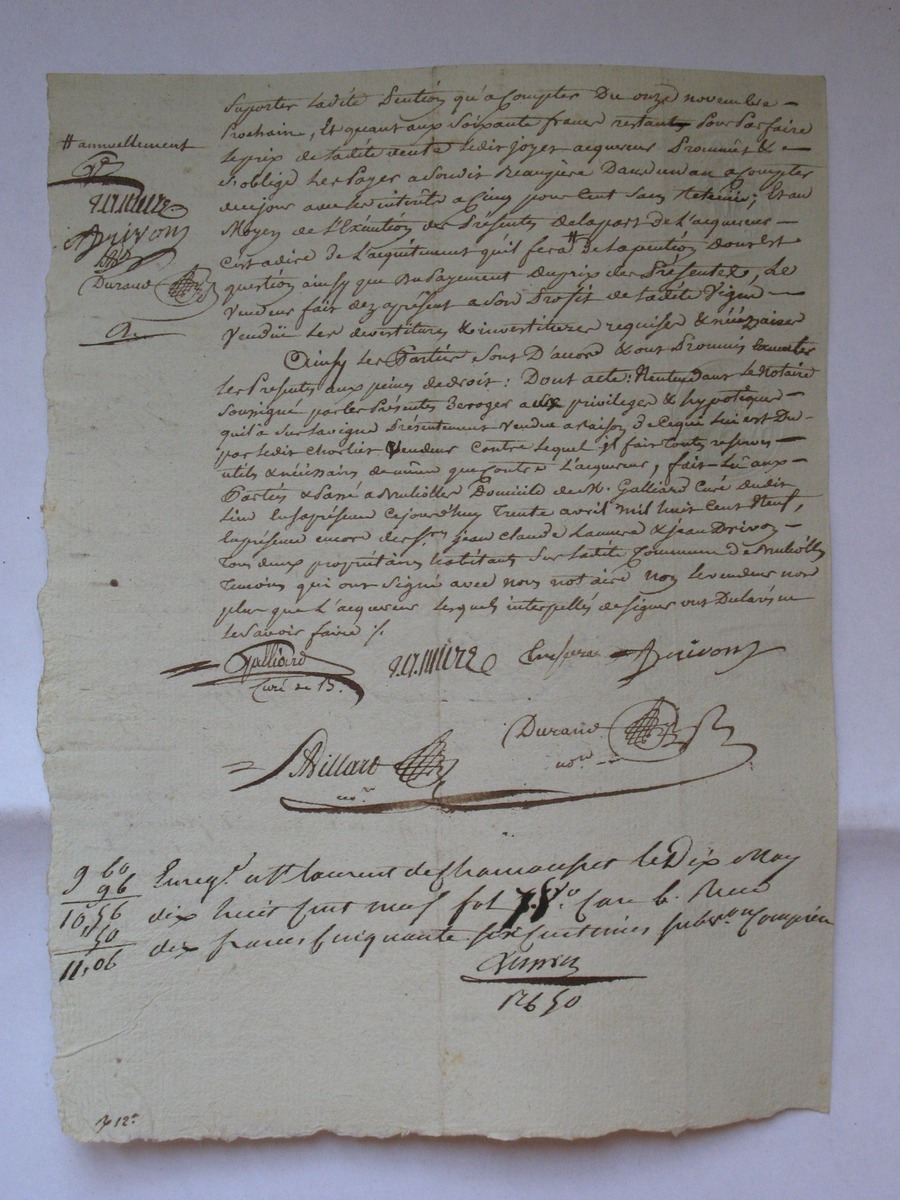 # annuellement
Drivon
Durand
Suporter ladite Pention qu'a Compter Du onze novembre
Prochain, Et quant aux Soixante francs restant Pour Parfaire
le prix de ladite vente ledit Joyet acquereur Promet &
s'oblige les Payer a Dans un an a Compter
de ce jour avec les interets a Cinq pour Cent Sans Retenue; Et au
Moyen de L'Exécution des Présentes de la part de L'acquereur
C'est adire de L'acquitement qu'il fera # De la pention Dont Est
question ainsy que Du Payement Du prix des Présentes, Le
Vendeur fait dez aprésent a Son Profit de ladite Vigne
Vendüe les devestitures & investitures requises & nécéssaires
Ainsy les Parties Sont D'accord & ont Promis
les Presentes aux peines de droit: Dont acte: le Notaire
Soussigné par les Présentes Deroger aux privileges & hypoteques
quil a Sur la vigne Présentement Vendue a raison De Cequi lui est Du
par ledit Vendeur Contre lequel il fait toutes reserves
utils & nécéssaires de même que Contre L'acquereur, fait Lû aux
Parties & Passé a Domicile de M. Galliard Curé dudit
Lieu En Sa présence Cejourd'huy trente avril Mil huit Cent Neuf,
En présence encore des Srs jean Claude & jean Drivon
tous deux propriétaires habitants Sur ladite Commune de
Temoins qui ont Signé avec nous notaire Non le vendeur non
plus que L'acquereur lesquels interpellés de Signer ont Déclaré ne
le Savoir faire ./.
Galliard
Curé de B.
Drivon
Durand
nore
Billard
nore
9 60
96
10,56
1,50
11,06
Enregé a St laurent de Chamousset le Dix May
dix huit Cent neuf fol 78 vo Case 6. Recu
dix francs Cinquante Six Centimes Subvon Comprise
126 50
12c